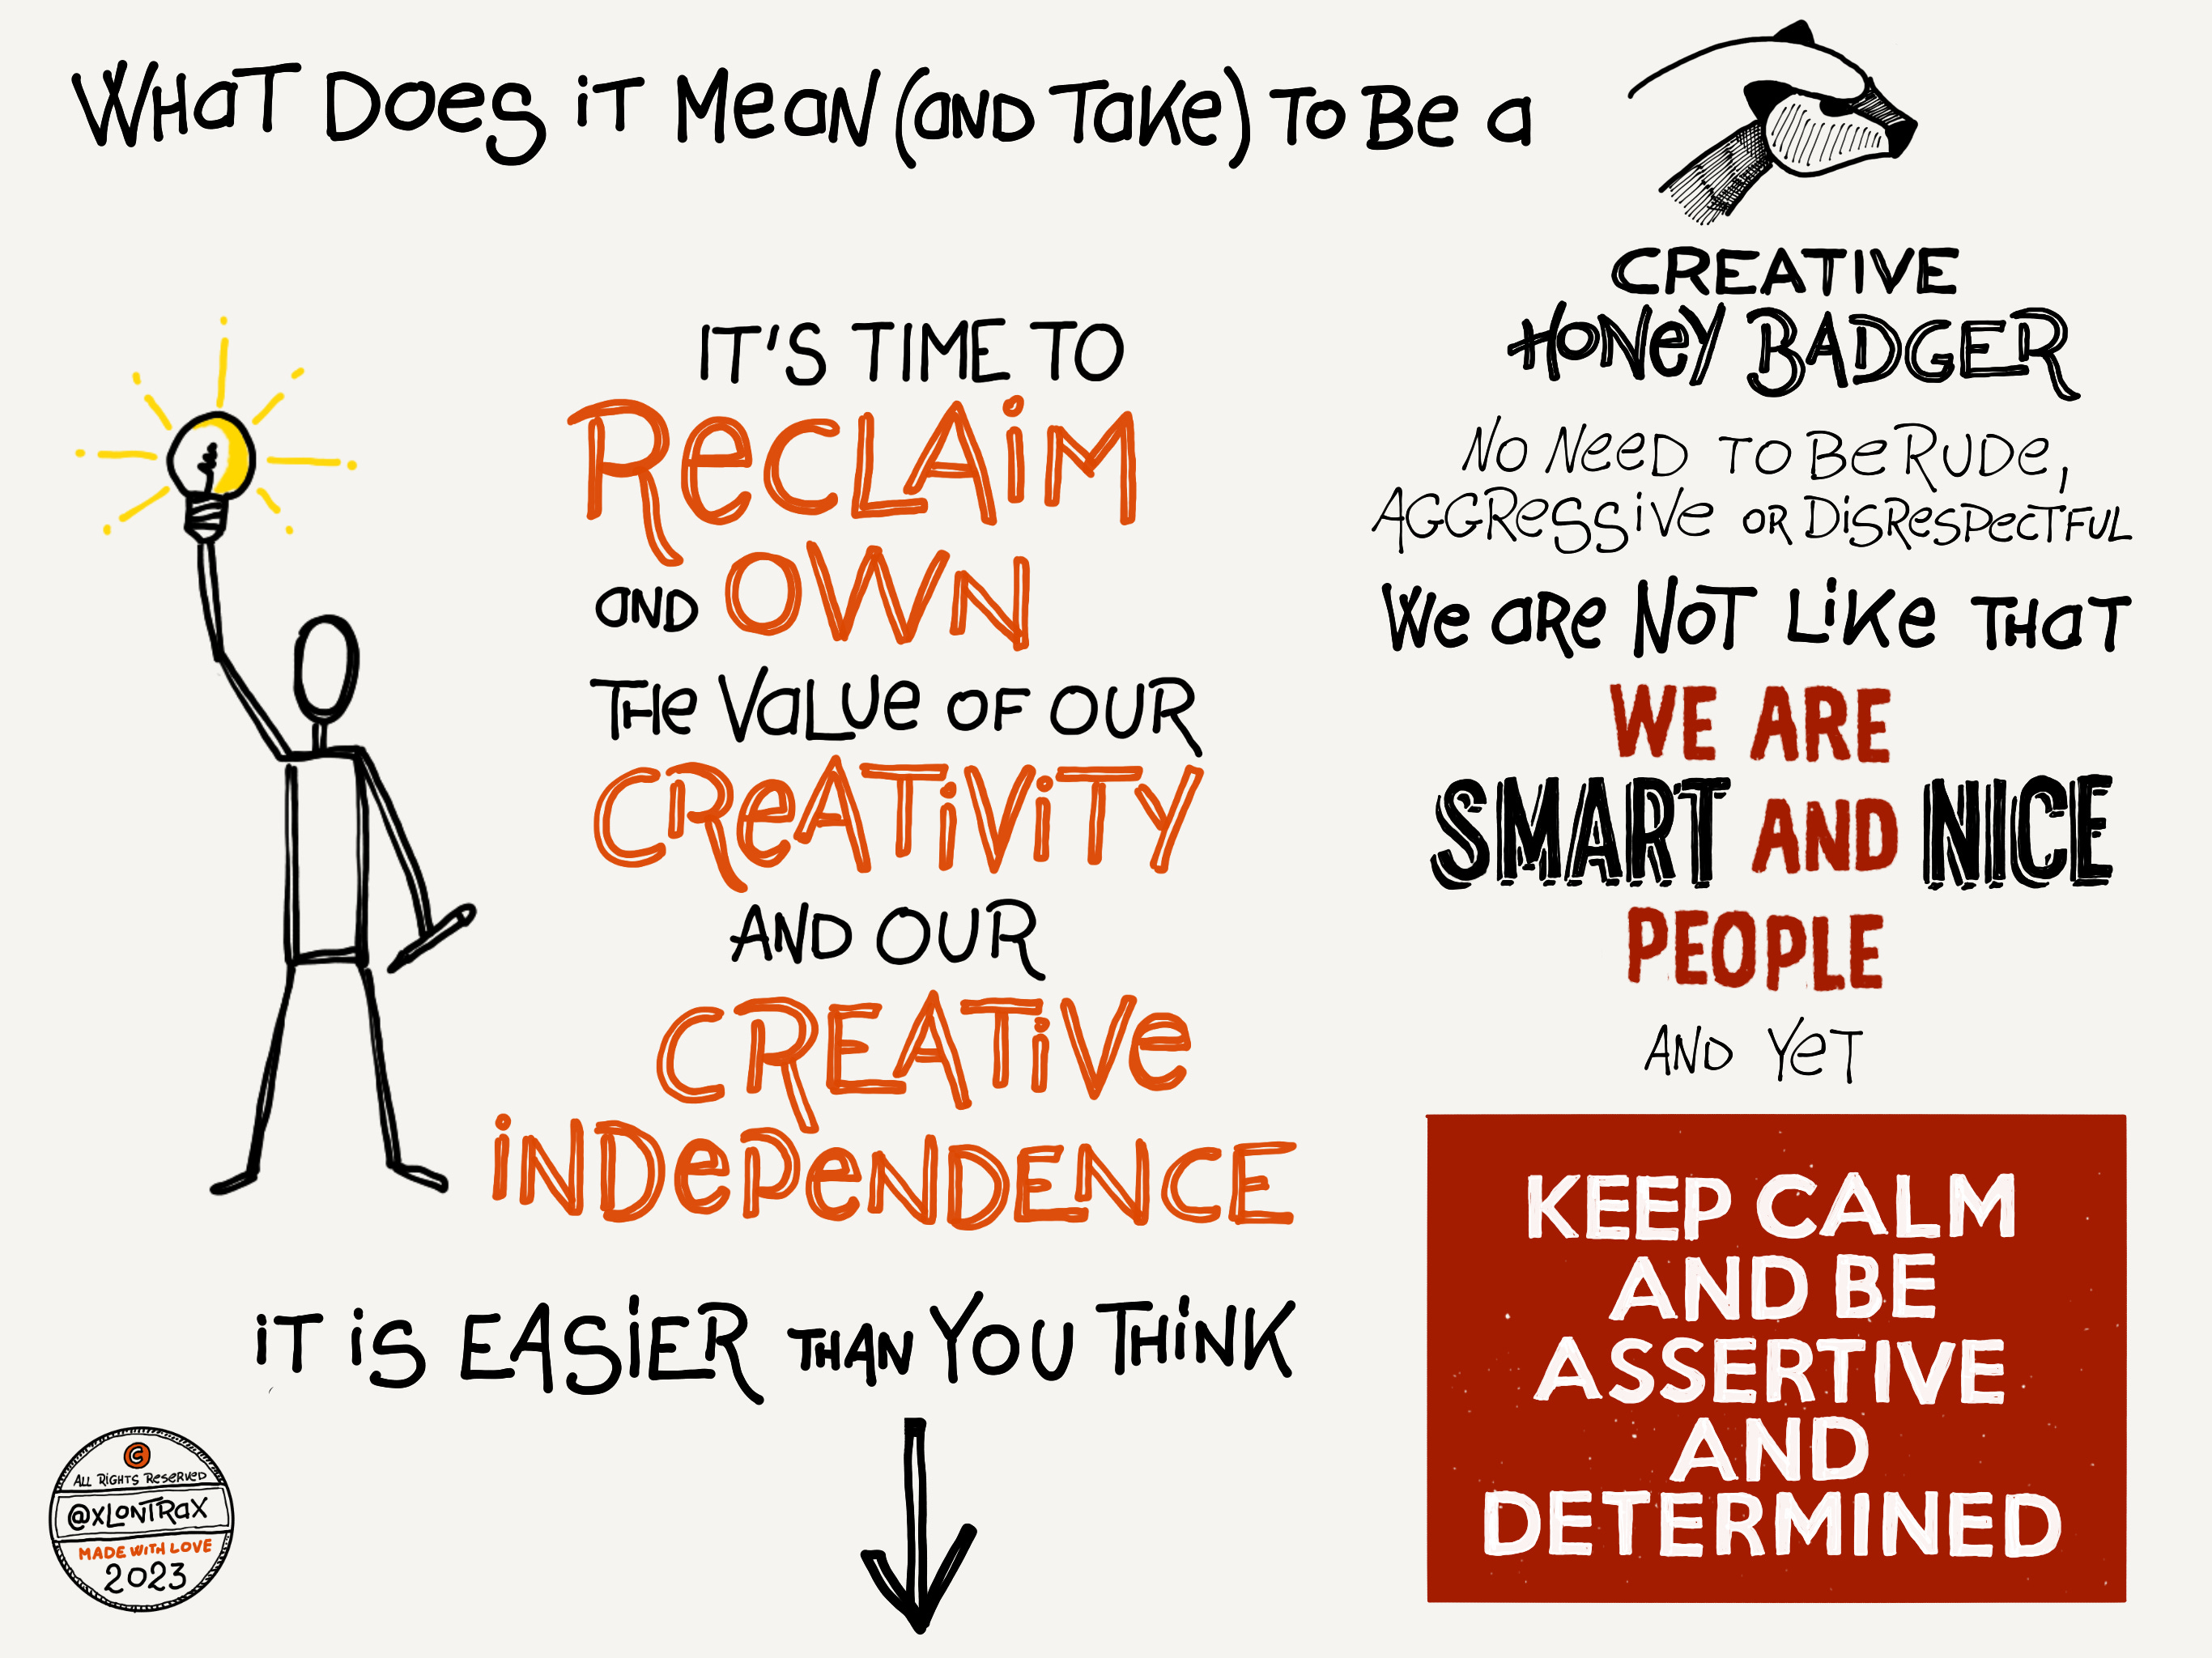 WHaT Does iT MeaN (aND TaKe) To Be a
CREATIVE
HoNey BADGER
No NeeD To Be RuDe,
AGGRessiVe oR DisRespecTFuL
We aRe NoT LiKe THaT
WE ARE
SMART AND NICE
PEOPLE
AND YeT
KEEP CALM
AND BE
ASSERTIVE
AND
DETERMINED
IT'S TIME TO
ReCLAiM
aND OWN
THe VaLue OF OUR
CReATiViTY
AND OUR
CREATiVe
iNDePeNDENCE
iT iS EASiER THAN YOU THiNK
©
ALL RiGHTS ReSeRVeD
@xLoNTRax
MADE WiTH LOVE
2023